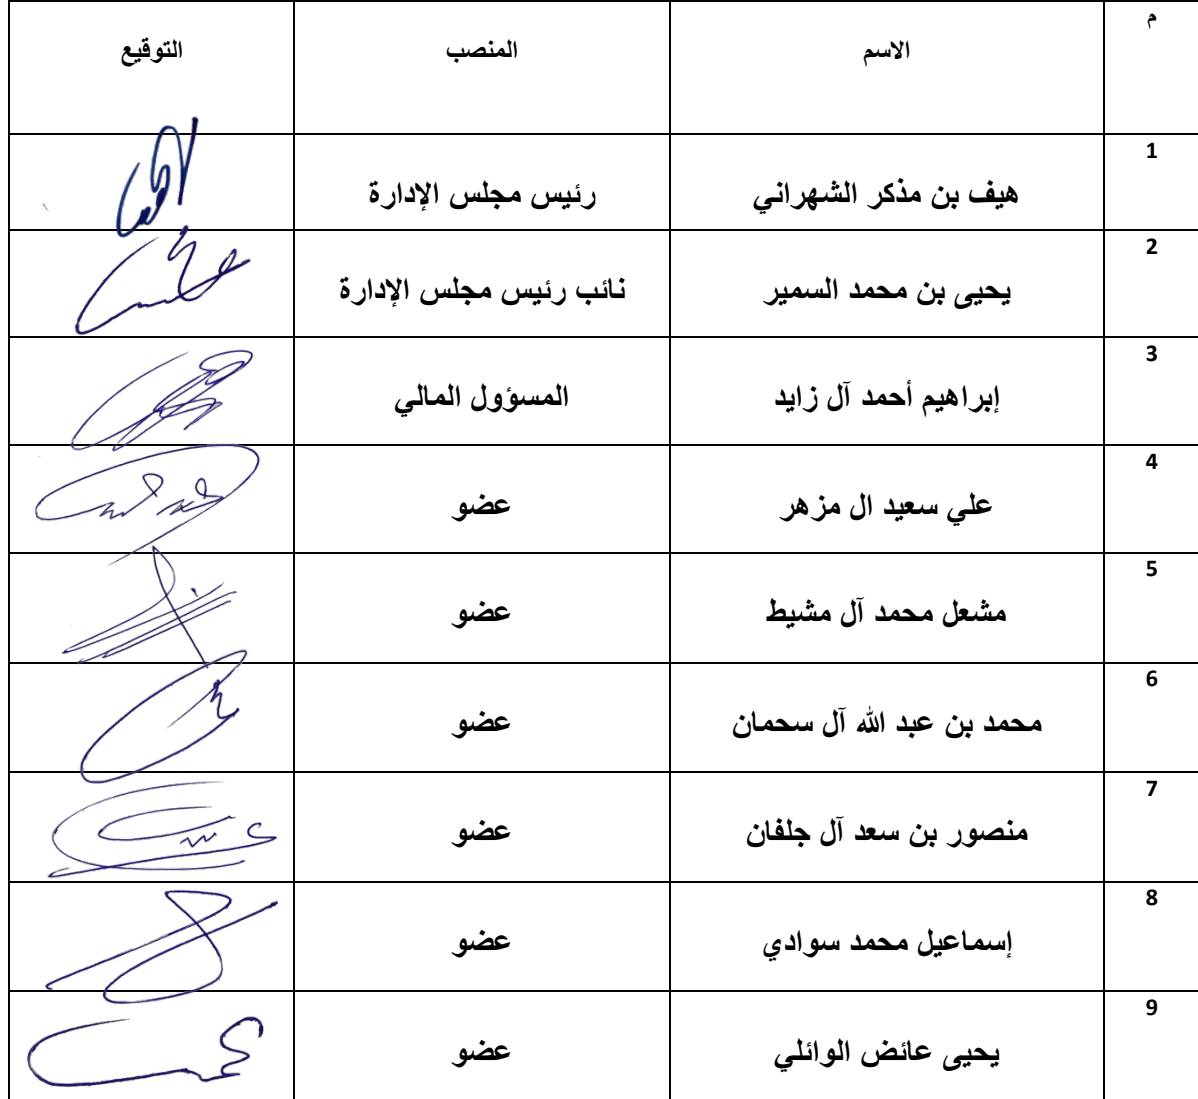 م الاسم المنصب التوقيع
1 هيف بن مذكر الشهراني رئيس مجلس الإدارة
2 يحيى بن محمد السمير نائب رئيس مجلس الإدارة
3 إبراهيم أحمد آل زايد المسؤول المالي
4 علي سعيد ال مزهر عضو
5 مشعل محمد آل مشيط عضو
6 محمد بن عبد الله آل سحمان عضو
7 منصور بن سعد آل جلفان عضو
8 إسماعيل محمد سوادي عضو
9 يحيى عائض الوائلي عضو